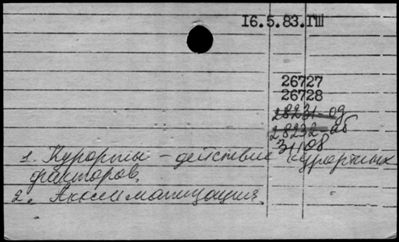 16.5.83.ГШ
26727
26728
28231-од
28232-аб
31108
1. Курорты - действие курортных
факторов.
2. Акклиматизация.